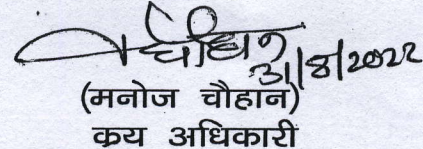 चौहान
31/8/2022
(मनोज चौहान)
क्रय अधिकारी